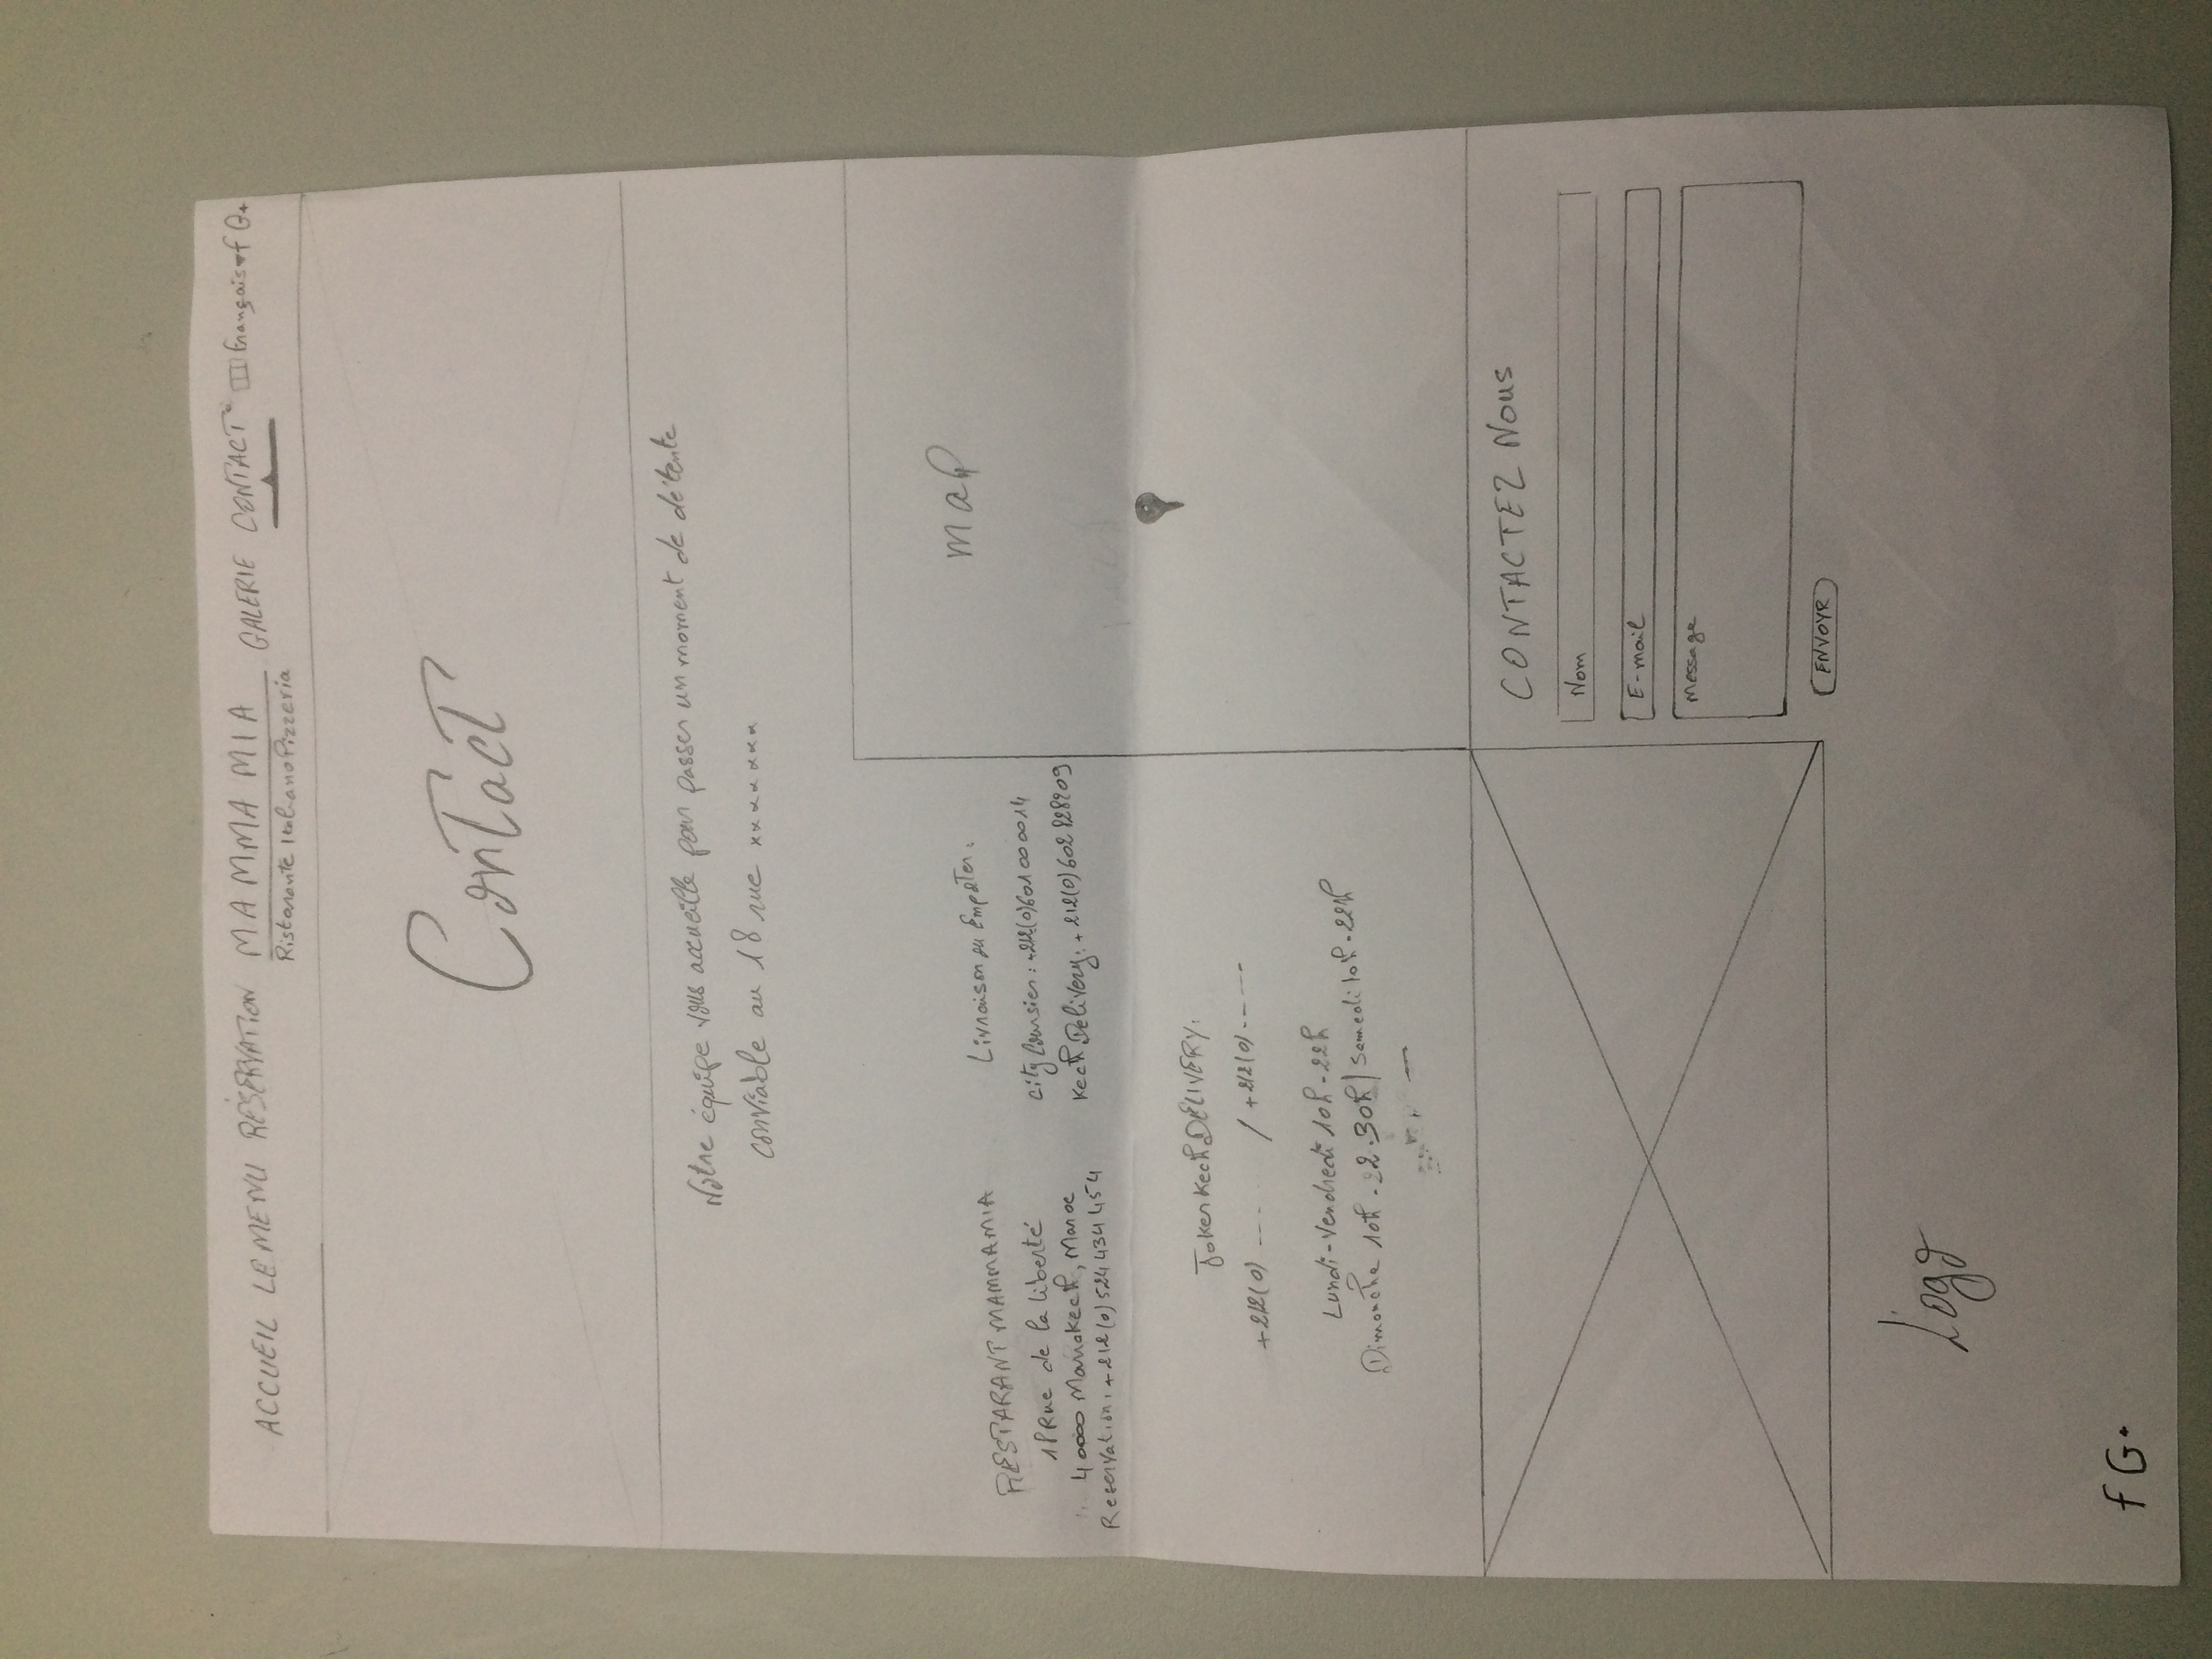 ACCUEIL LE MENU RÉSERVATION MAMMA MIA GALERIE CONTACT Français f G+
Ristorante Italiano Pizzeria
Contact
Notre équipe vous accueille pour passer un moment de détente
conviable au 18 rue xxxxxxx
map
RESTARANT MAMMAMIA
18 Rue de la liberté
40000 Marrakech, Maroc
Reservation: +212(0)524 434 454
Livraison ou Empoter:
City Coursier: +212(0)601 000014
Kech Delivery: +212(0)602 828209
Joker Kech DELIVERY:
+212(0) ---- / +212(0)-----
Lundi-Vendredi 10h-22h
Dimanche 10h-22.30h | Samedi 10h-22h
CONTACTEZ NOUS
Nom
E-mail
Message
ENVOYR
Logo
f G+